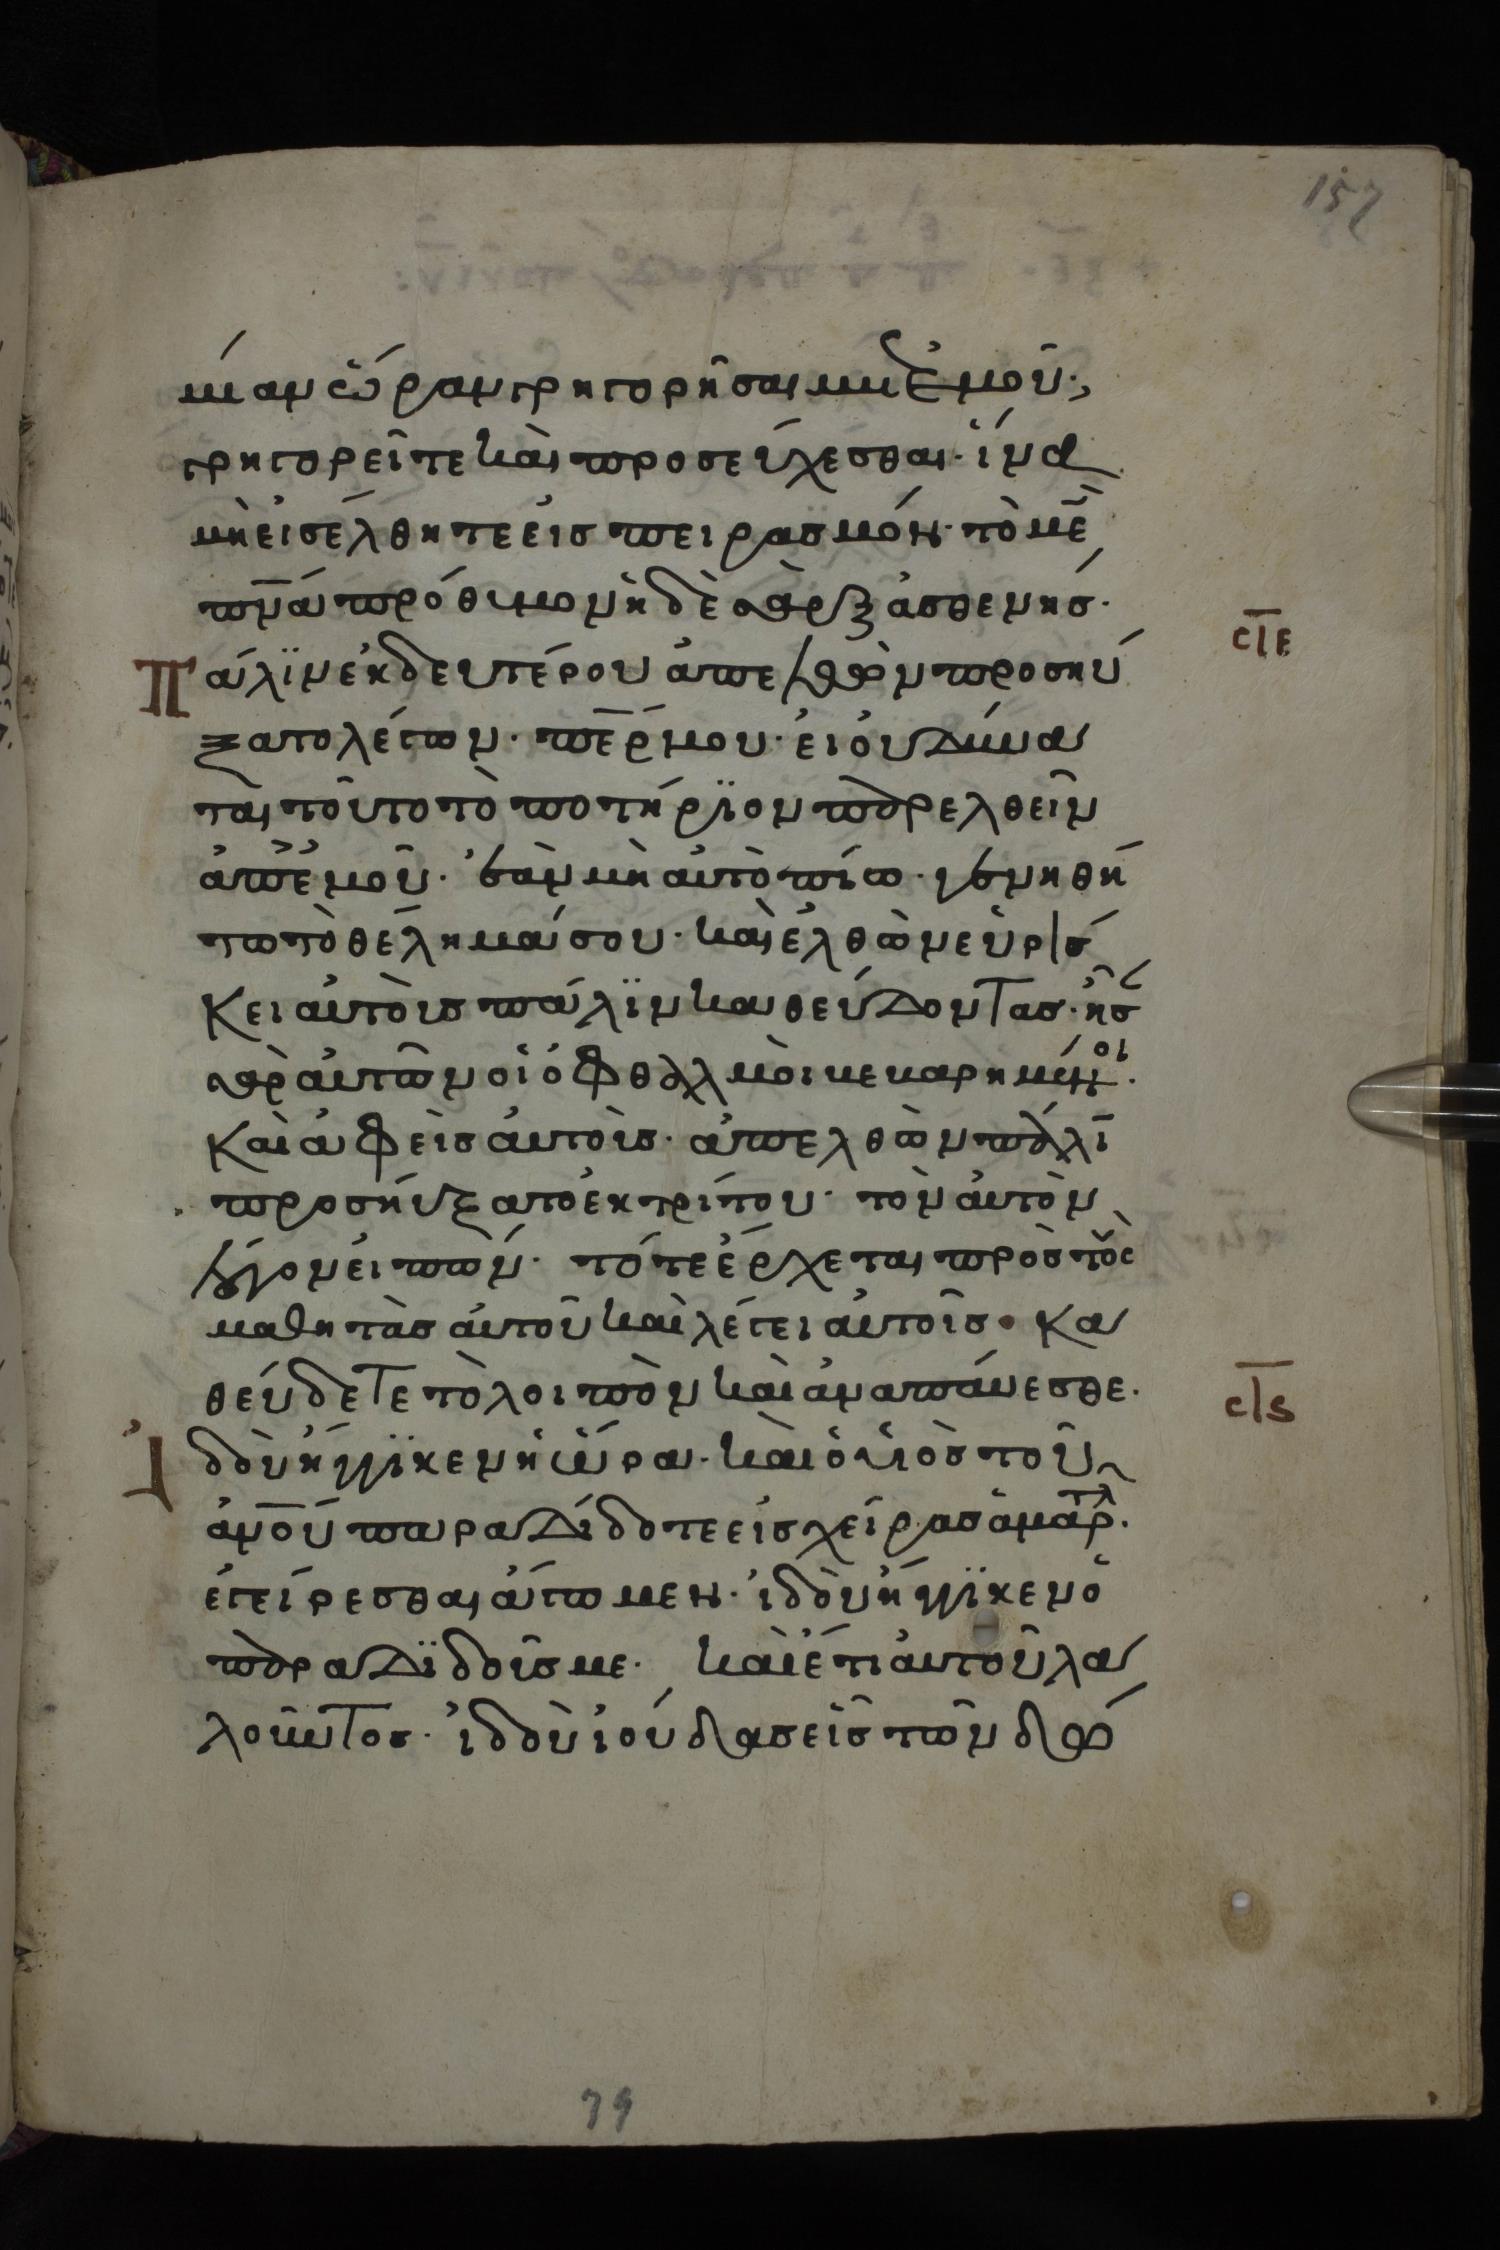 157
μίαν ὥραν γρηγορῆσαι μετ ἐμοῦ·
γρηγορεῖτε καὶ προσεύχεσθαι· ἵνα
μὴ εἰσέλθητε εἰς πειρασμόν· τὸ μὲ
πνᾱ́ πρόθυμον ἡ δὲ σὰρξ ἀσθενής·
Πάλϊν ἐκ δευτέρου ἀπελθὼν προσηύ
ξατο λέγων· πε̄ρ μου· εἰ οὐ δύνα
ται τοῦτο τὸ ποτήρϊον παρελθεῖν
ἀπ ἐμοῦ· ἐὰν μὴ αὐτὸ πίω· γενηθή
τω τὸ θέλημά σου· καὶ ἐλθὼν εὑρίσ
κει αὐτοὺς πάλϊν καθεύδοντας· ἦσ
γὰρ αὐτῶν οἱ ὀφθαλμοὶ κεκαρημένοι·
Καὶ ἀφεὶς αὐτοὺς· ἀπελθὼν πάλῑ
προσηύξατο ἐκ τρίτου· τὸν αὐτὸν
λόγον εἰπών· τότε ἔρχεται πρὸς τοὺς
μαθητὰς αὐτοῦ καὶ λέγει αὐτοῖς· Κα
θεύδετε τὸ λοιπὸν καὶ ἀναπάυεσθε·
Ἰδοὺ ἤγγϊκεν ἡ ὥρα· καὶ ὁ υἱὸς τοῦ
ἀν̄ου παραδίδοτε εἰς χεῖρας ἁμαρτλ·
ἐγείρεσθαι ἄγωμεν· ἰδοὺ ἤγγϊκεν ὁ
παραδϊδούς με· καὶ ἔτι αὐτοῦ λα
λοῦντος· ἰδοὺ ἰούδας εἷς τῶν δώ
σ̄ϟε
σ̄ϟς
79